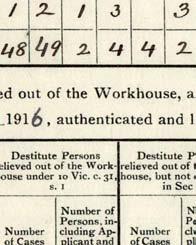 1 2 1 3 3
48 49 2 4 4 2
ed out of the Workhouse, a
1916, authenticated and l
Destitute Persons
relieved out of the Work-
house under 10 Vic. c. 31,
s. 1
Destitute P
relieved out of t
house, but not
in Sec
Number
of Cases
Number of
Persons, in-
cluding Ap-
plicant and
Number
of Cases